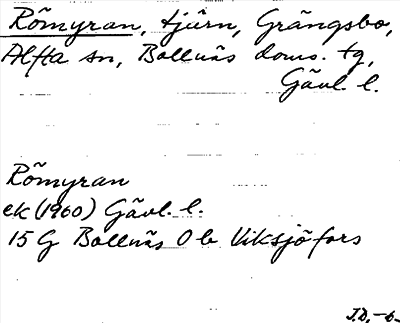 Römyran, tjärn, Grängsbo,
Alfta sn, Bollnäs doms. tg,
Gävl. l.
Römyran
ek (1960) Gävl. l.
15 G Bollnäs O b Viksjöfors
J.D. -6-